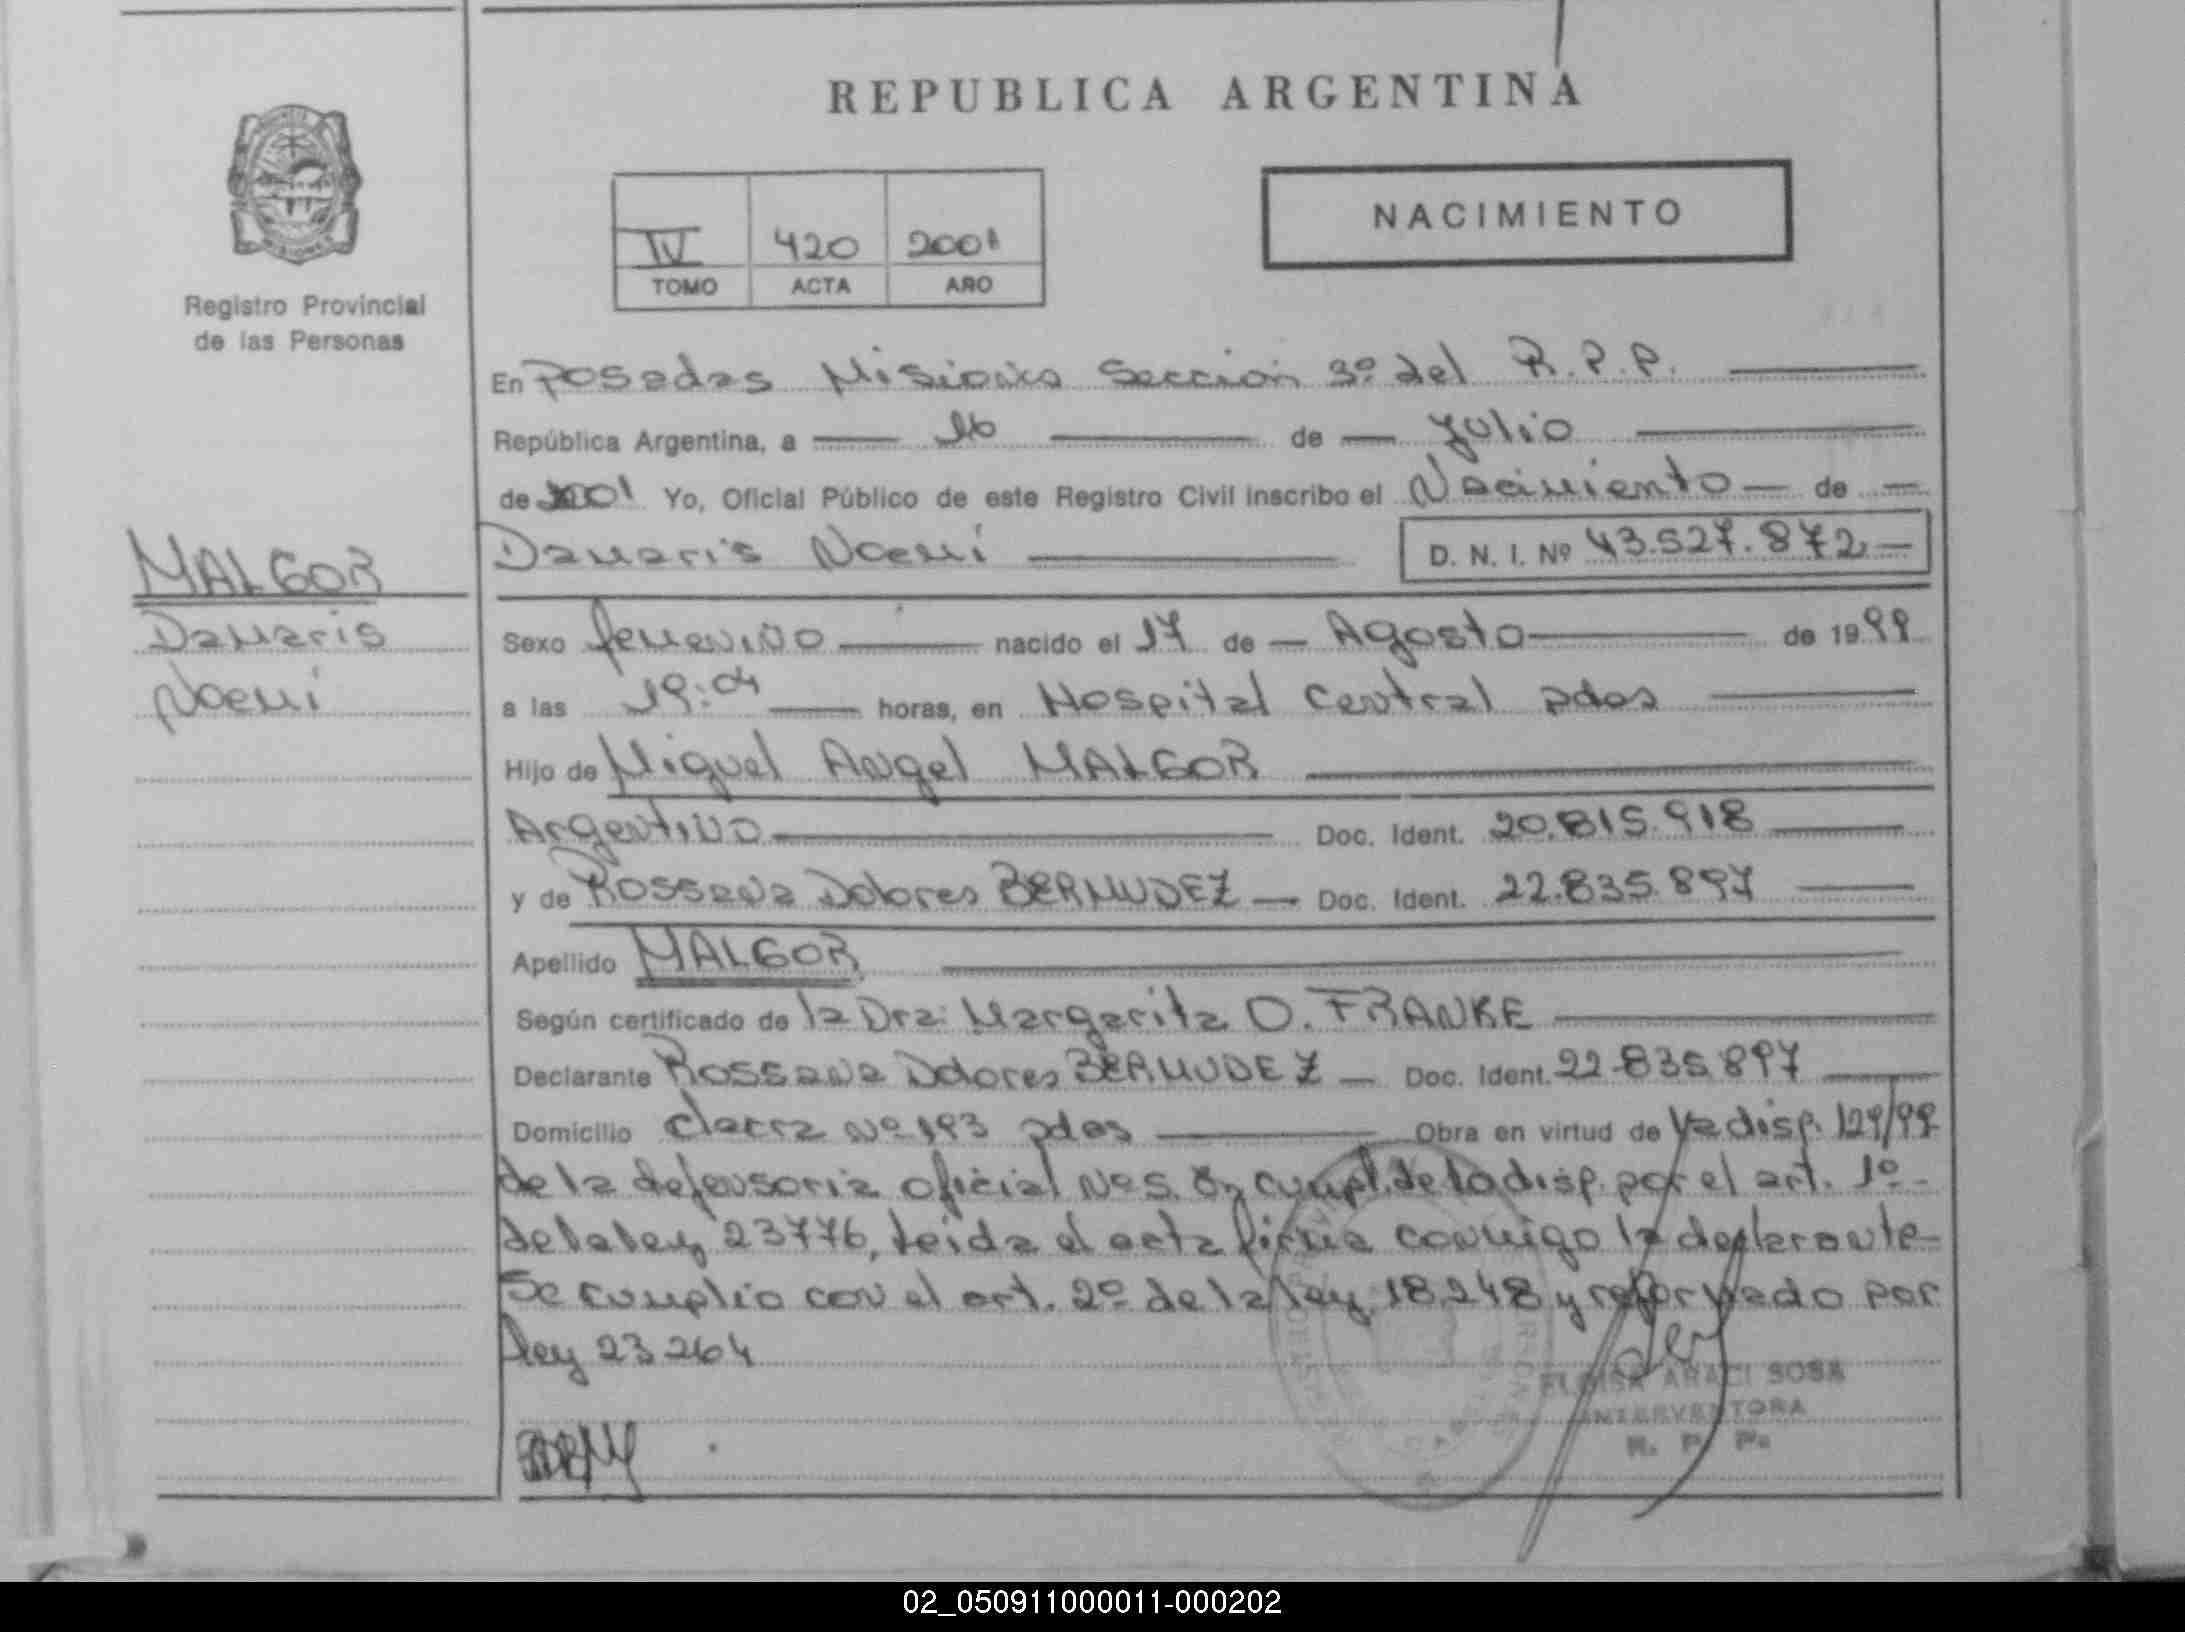 REPUBLICA ARGENTINA
NACIMIENTO
IV 420 2001
TOMO ACTA AÑO
Registro Provincial
de las Personas
En Posadas Misiones Sección 3º del R.P.P.
República Argentina, a 16 de Julio
de 2001 Yo, Oficial Público de este Registro Civil inscribo el Nacimiento de
Damaris Noemí D. N. I. Nº 43.527.872
MALGOR
Damaris
Noemí
Sexo femenino nacido el 17 de Agosto de 1999
a las 19:04 horas, en Hospital Central pdas
Hijo de Miguel Angel MALGOR
Argentino Doc. Ident. 20.815.918
y de Rossana Dolores BERMUDEZ Doc. Ident. 22.835.897
Apellido MALGOR
Según certificado de la Dra: Margarita O. FRANKE
Declarante Rossana Dolores BERMUDEZ Doc. Ident. 22.835.897
Domicilio Nº 193 pdas Obra en virtud de la disp. 129/99
de la defensoria oficial Nº 5. En cumpl. de lo disp. por el art. 1º
de la ley 23776, leida el acta firma conmigo la declarante
Se cumplio con el art. 2º de la ley 18.248 y reformado por
ley 23264
ELOISA ARACI SOSA
INTERVENTORA
R. P. P.
02_050911000011-000202